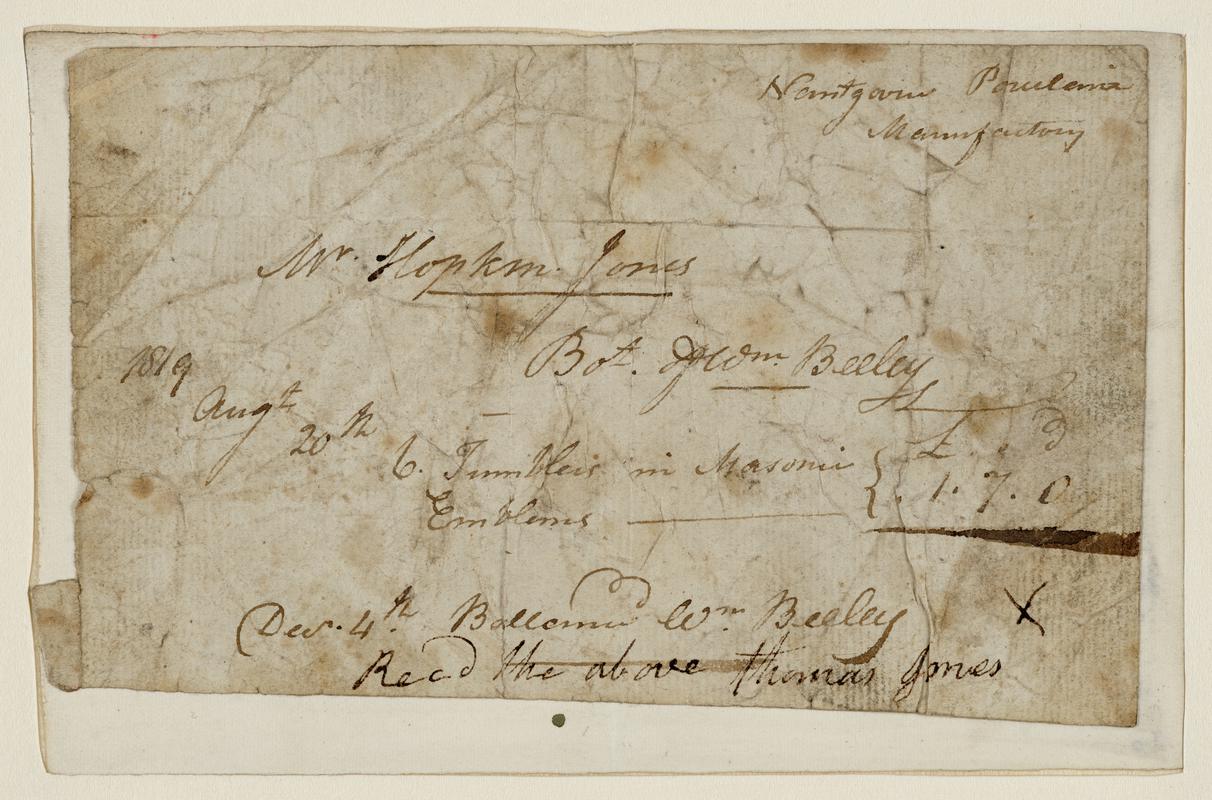 Nantgarw Porcelain
Manufactory
Mr. Hopkin Jones
Bot. of Wm. Beeley
1819
Augt
20th
£ . s d
6. Tumblers in Masonic
{. 1. 7. 0
Emblems
Decr. 4th Wm Beeley
X
Recd the above thomas Jones